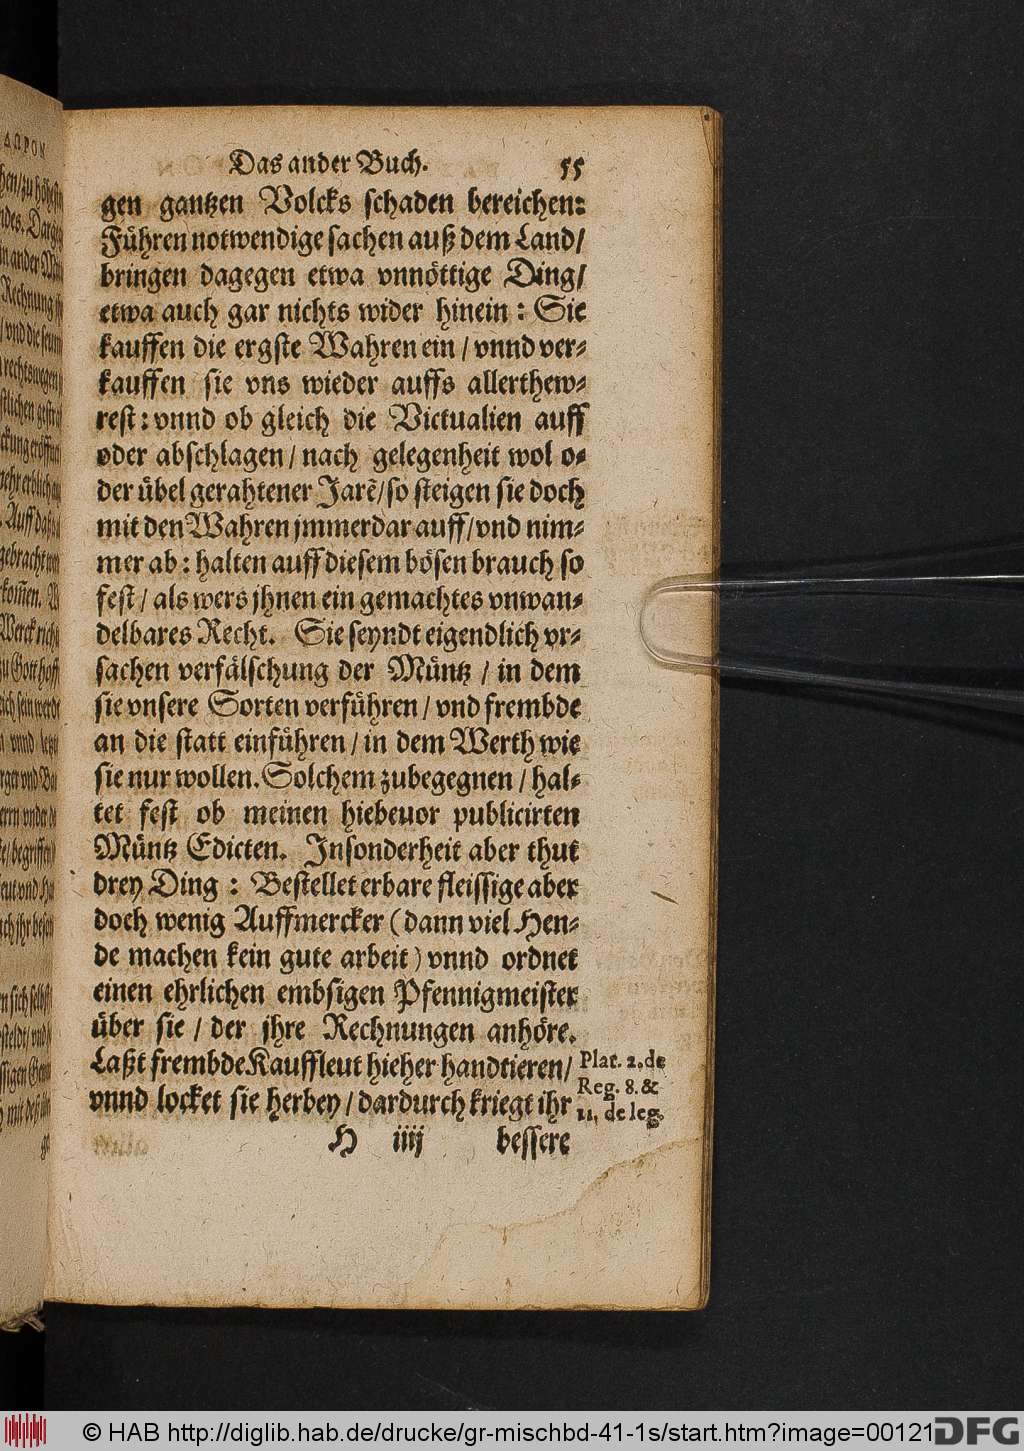 Das ander Buch. 55
gen gantzen Volcks schaden bereichen:
Führen notwendige sachen auß dem Land/
bringen dagegen etwa vnnöttige Ding/
etwa auch gar nichts wider hinein : Sie
kauffen die ergste Wahren ein / vnnd ver-
kauffen sie vns wieder auffs allerthew-
rest: vnnd ob gleich die Victualien auff
oder abschlagen / nach gelegenheit wol o-
der übel gerahtener Jarẽ/so steigen sie doch
mit den Wahren jmmerdar auff/vnd nim-
mer ab : halten auff diesem bösen brauch so
fest / als wers jhnen ein gemachtes vnwan-
delbares Recht. Sie seyndt eigendlich vr-
sachen verfälschung der Müntz / in dem
sie vnsere Sorten verführen / vnd frembde
an die statt einführen / in dem Werth wie
sie nur wollen. Solchem zubegegnen / hal-
tet fest ob meinen hiebeuor publicirten
Müntz Edicten. Insonderheit aber thut
drey Ding : Bestellet erbare fleissige aber
doch wenig Auffmercker (dann viel Hen-
de machen kein gute arbeit) vnnd ordnet
einen ehrlichen embsigen Pfennigmeister
über sie / der jhre Rechnungen anhöre.
Laßt frembde Kauffleut hieher handtieren/
vnnd locket sie herbey / dardurch kriegt ihr
Plat. 2. de
Reg. 8. &
11. de leg.
H iiij bessere
© HAB http://diglib.hab.de/drucke/gr-mischbd-41-1s/start.htm?image=00121
DFG